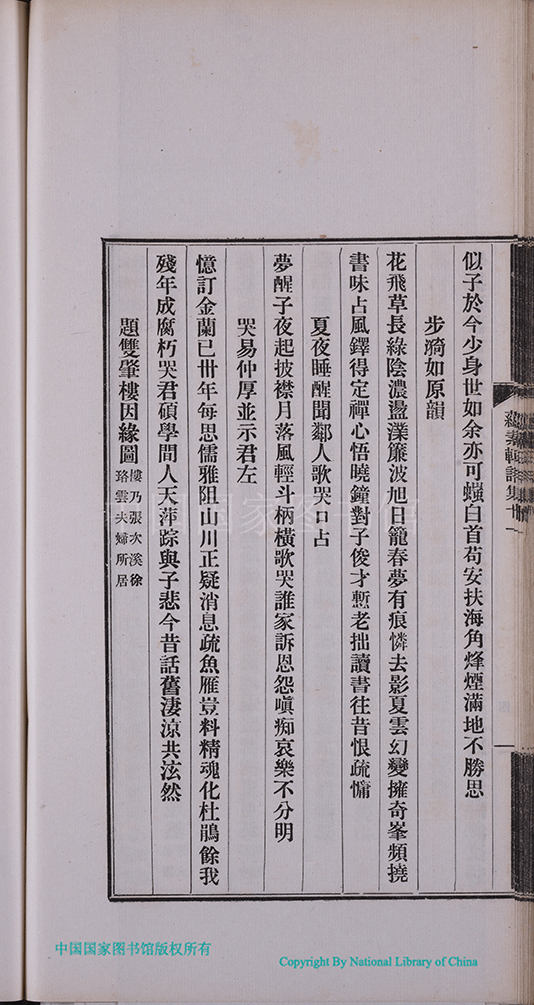 似子於今少身世如余亦可蚩白首苟安扶海角烽煙滿地不勝思
步漪如原韻
花飛草長綠陰濃盪漾簾波旭日籠春夢有痕憐去影夏雲幻變擁奇峯頻撓
書味占風鐸得定禪心悟曉鐘對子俊才慙老拙讀書往昔恨疏慵
夏夜睡醒聞鄰人歌哭口占
夢醒子夜起披襟月落風輕斗柄橫歌哭誰家訴恩怨嗔痴哀樂不分明
哭易仲厚並示君左
憶訂金蘭已卅年每思儒雅阻山川正疑消息疏魚雁豈料精魂化杜鵑餘我
殘年成腐朽哭君碩學問人天萍踪與子悲今昔話舊淒涼共泫然
題雙肇樓因緣圖
樓乃張次溪徐
珞雲夫婦所居
中国国家图书馆版权所有
Copyright By National Library of China